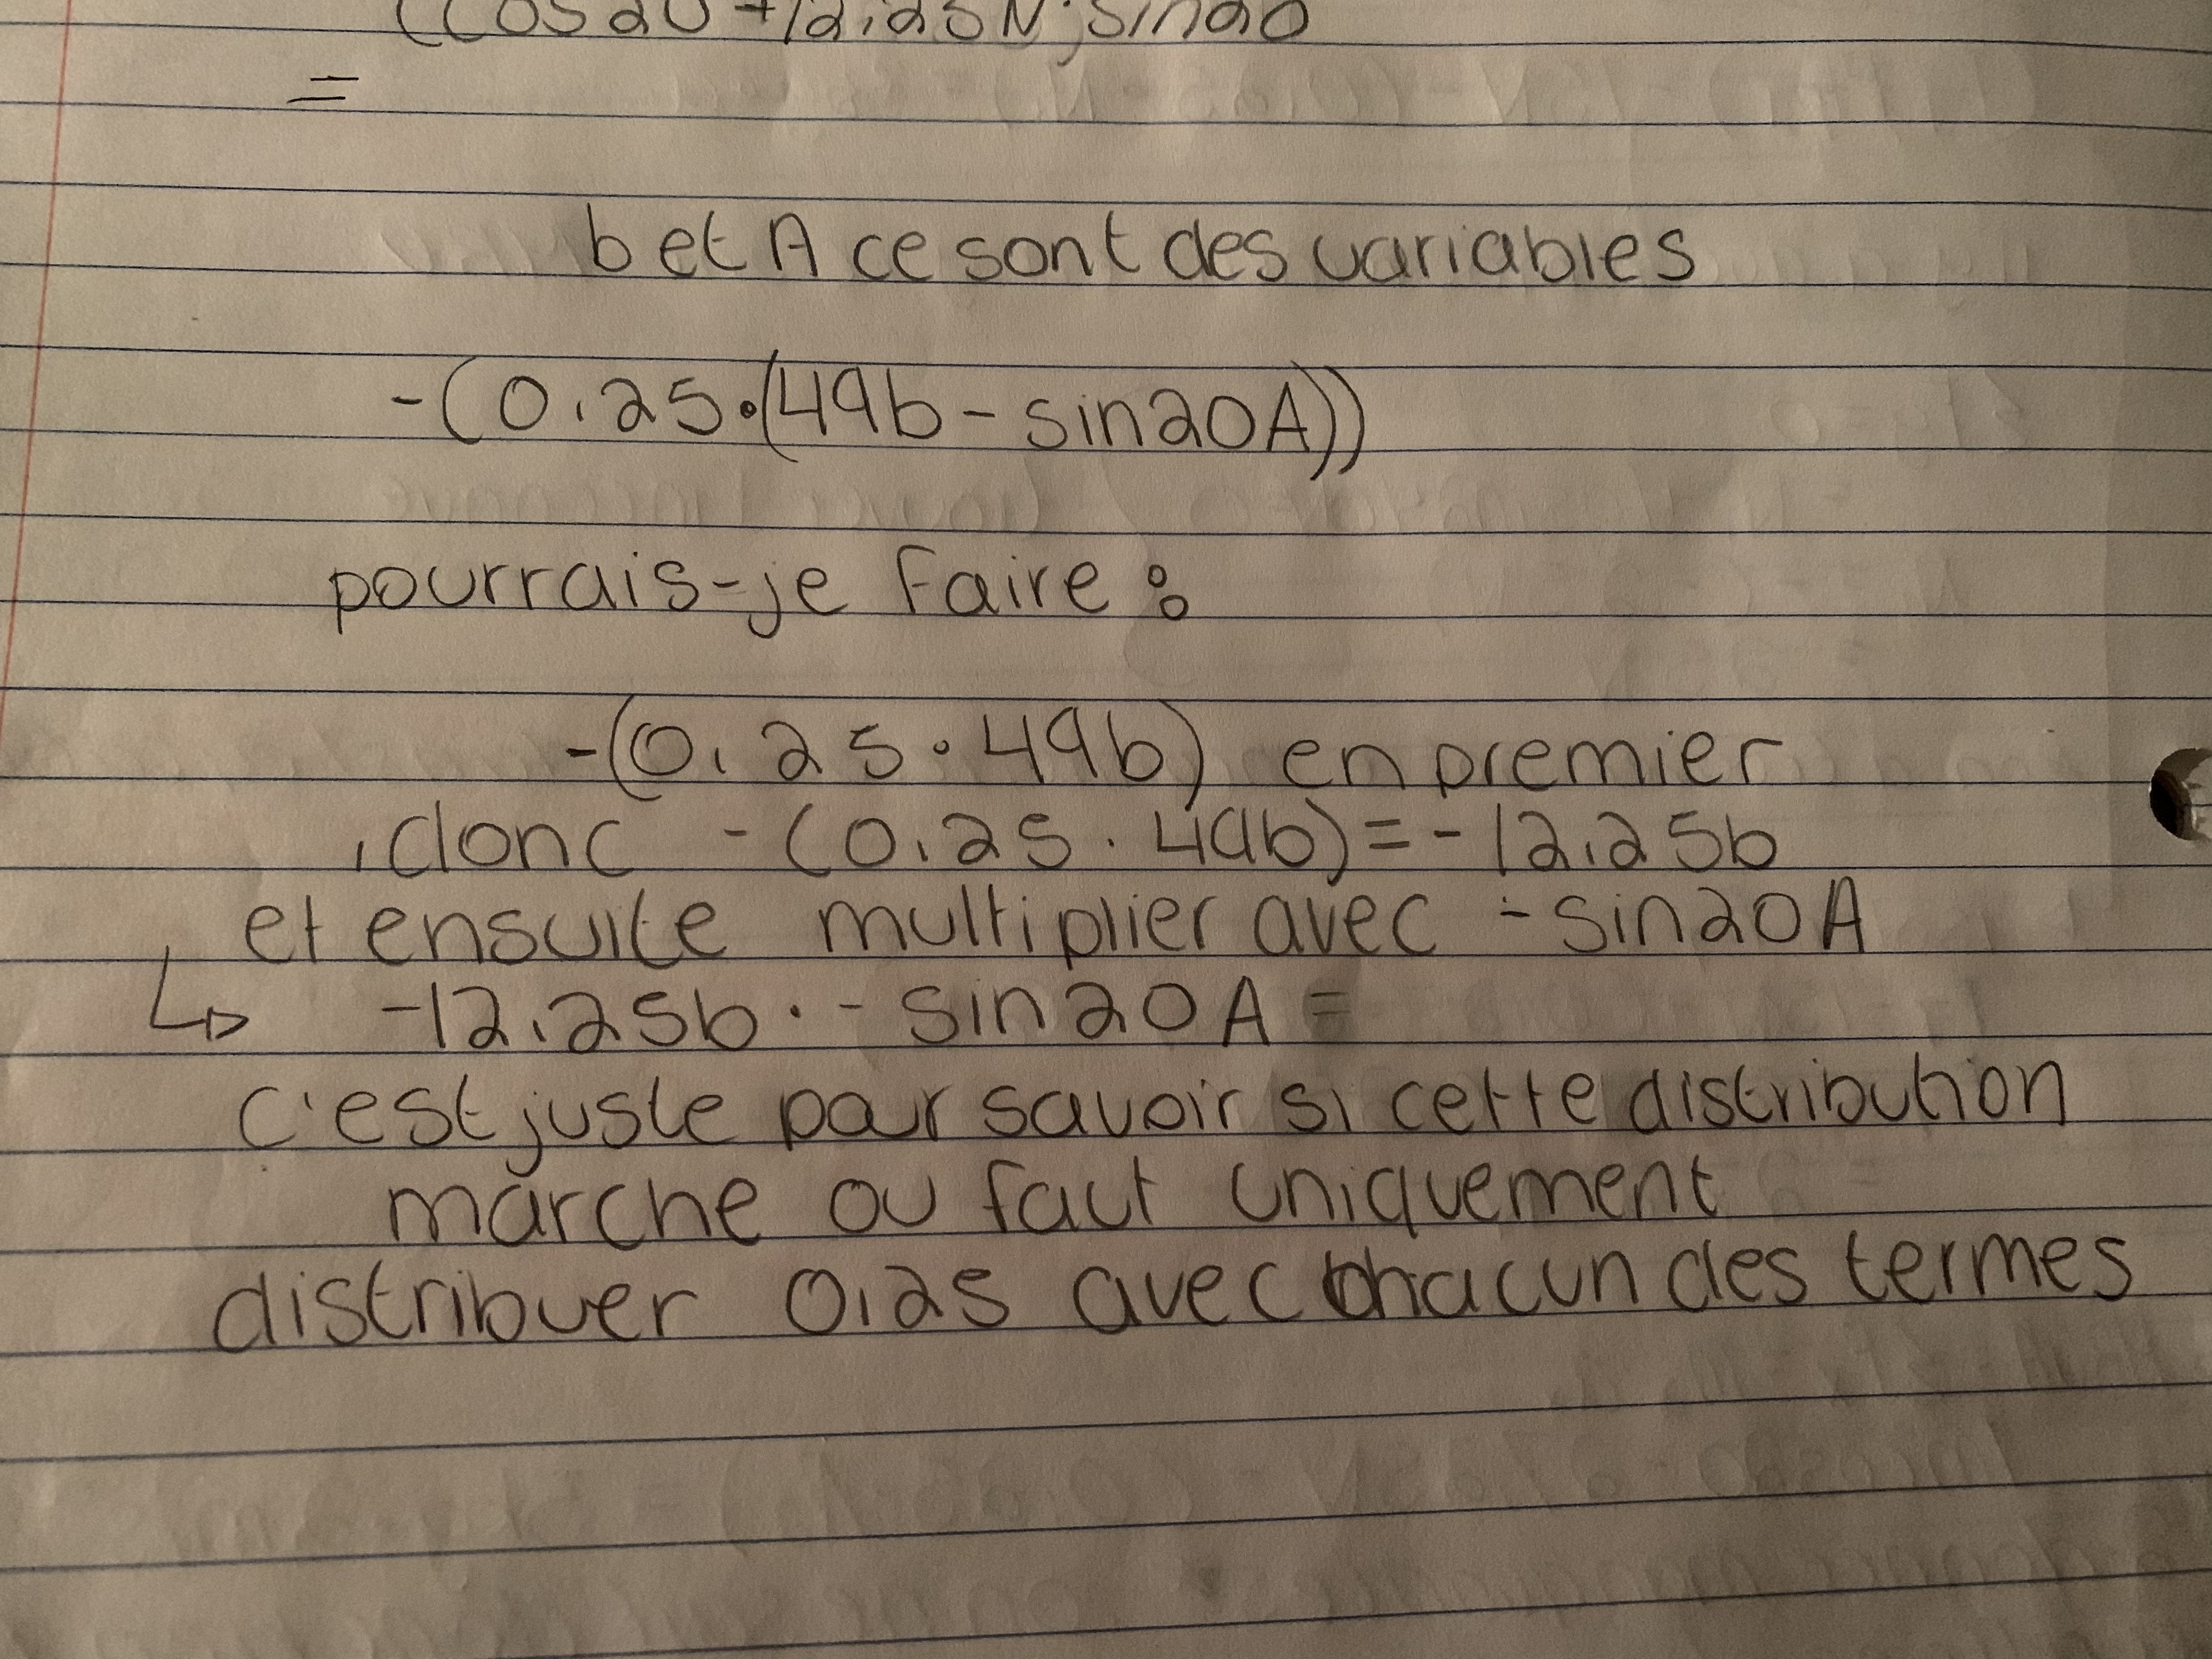 (Cos20 + 12,25N · sin20
=
b et A ce sont des variables
-(0,25·(49b - sin20A))
pourrais-je faire :
-(0,25·49b) en premier
,donc -(0,25·49b)=-12,25b
et ensuite multiplier avec -sin20A
↳ -12,25b·-sin20A=
c'est juste pour savoir si cette distribution
marche ou faut uniquement
distribuer 0,25 avec chacun des termes